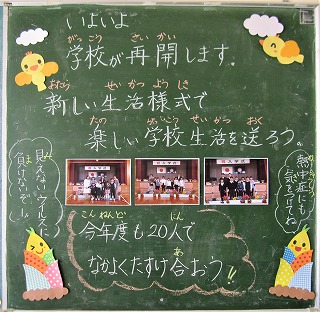 いよいよ
がっこう さいかい
学校が再開します。
あたら せいかつ ようしき
新しい生活様式で
たの がっこう せいかつ おく
楽しい学校生活を送ろう。
見えないウイルスに
負けないぞ!
熱中症にも
気をつけてね
こんねんど にん
今年度も20人で
あ
なかよくたすけ合おう!!